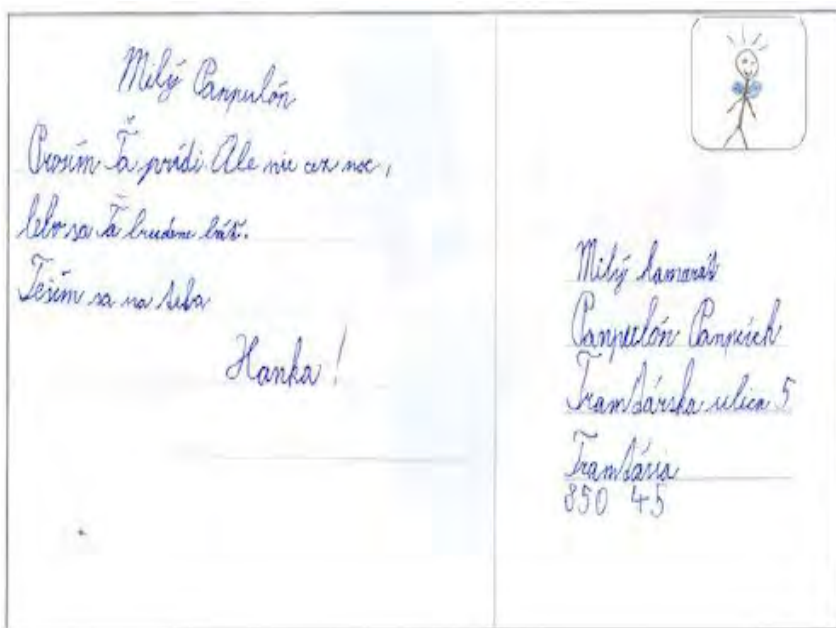 Milý Panpulón
Prosím Ťa prídi. Ale nie cez noc,
lebo sa Ťa budeme báť.
Teším sa na teba
Hanka!
Milý kamarát
Panpulón
Tramtárska ulica 5
Tramtária
850 45